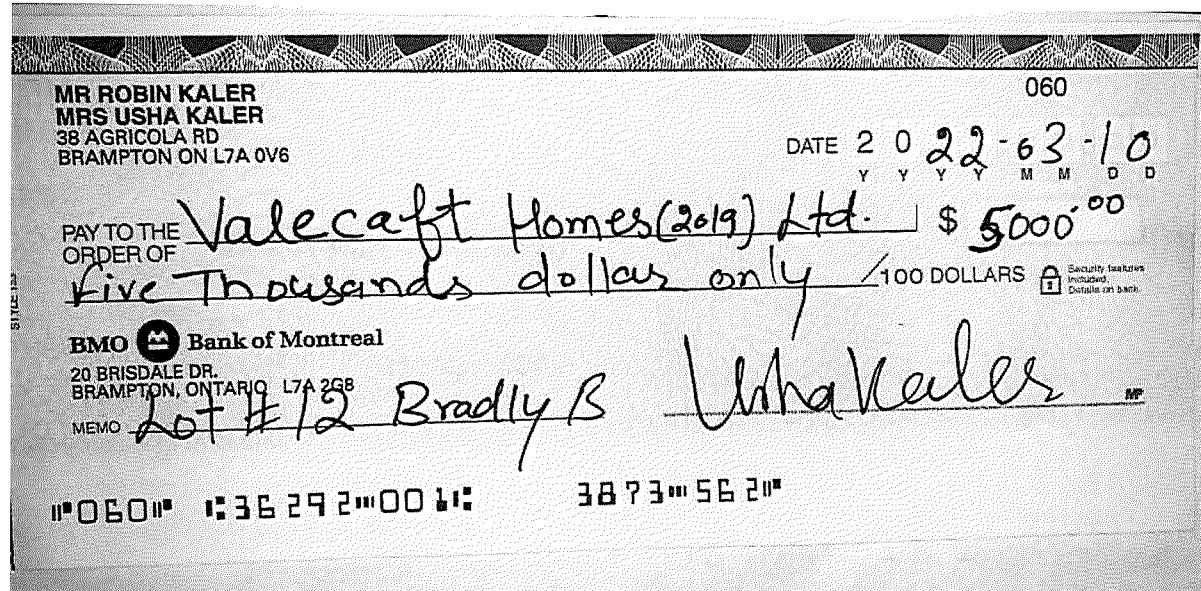 060
MR ROBIN KALER
MRS USHA KALER
38 AGRICOLA RD
BRAMPTON ON L7A 0V6
DATE 2022-03-10
Y Y Y Y M M D D
PAY TO THE ORDER OF Valecaft Homes(2019) Ltd. $ 5000.00
Five Thousands dollars only /100 DOLLARS
Security features included. Details on back.
BMO Bank of Montreal
20 BRISDALE DR.
BRAMPTON, ONTARIO L7A 2G8
MEMO Lot #12 Bradly B
Usha Kaler
MP
⑈060⑈ ⑆36292⑉001⑆ 3873⑉562⑈